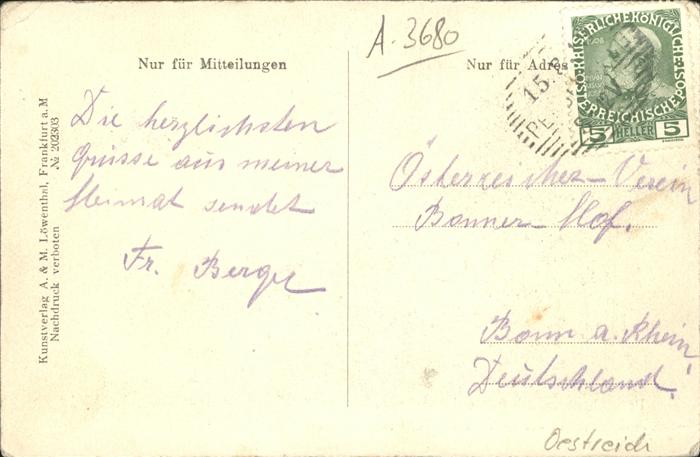 A-3680
Nur für Mitteilungen
Nur für Adres
Die herzlichsten
Grüsse aus meiner
Heimat sendet
Fr. Berger
Österreicher-Verein
Bonner-Hof.
Bonn a. Rhein,
Deutschland.
Kunstverlag A. & M. Löwenthal, Frankfurt a. M
№ 202303
Nachdruck verboten
KAISERLICHE KÖNIGLICHE
ÖSTERREICHISCHE POST
5 HELLER 5
15
Oestreich